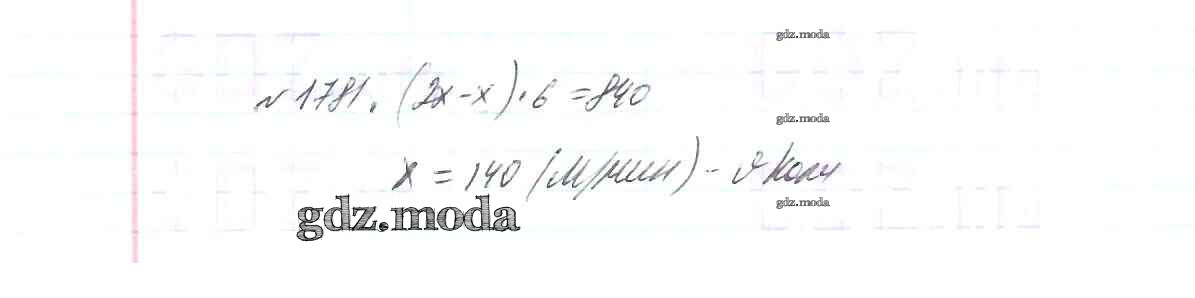 gdz.moda
№1781. (2x-x)·6=840
gdz.moda
x=140 (м/мин) - υ Коли
gdz.moda
gdz.moda